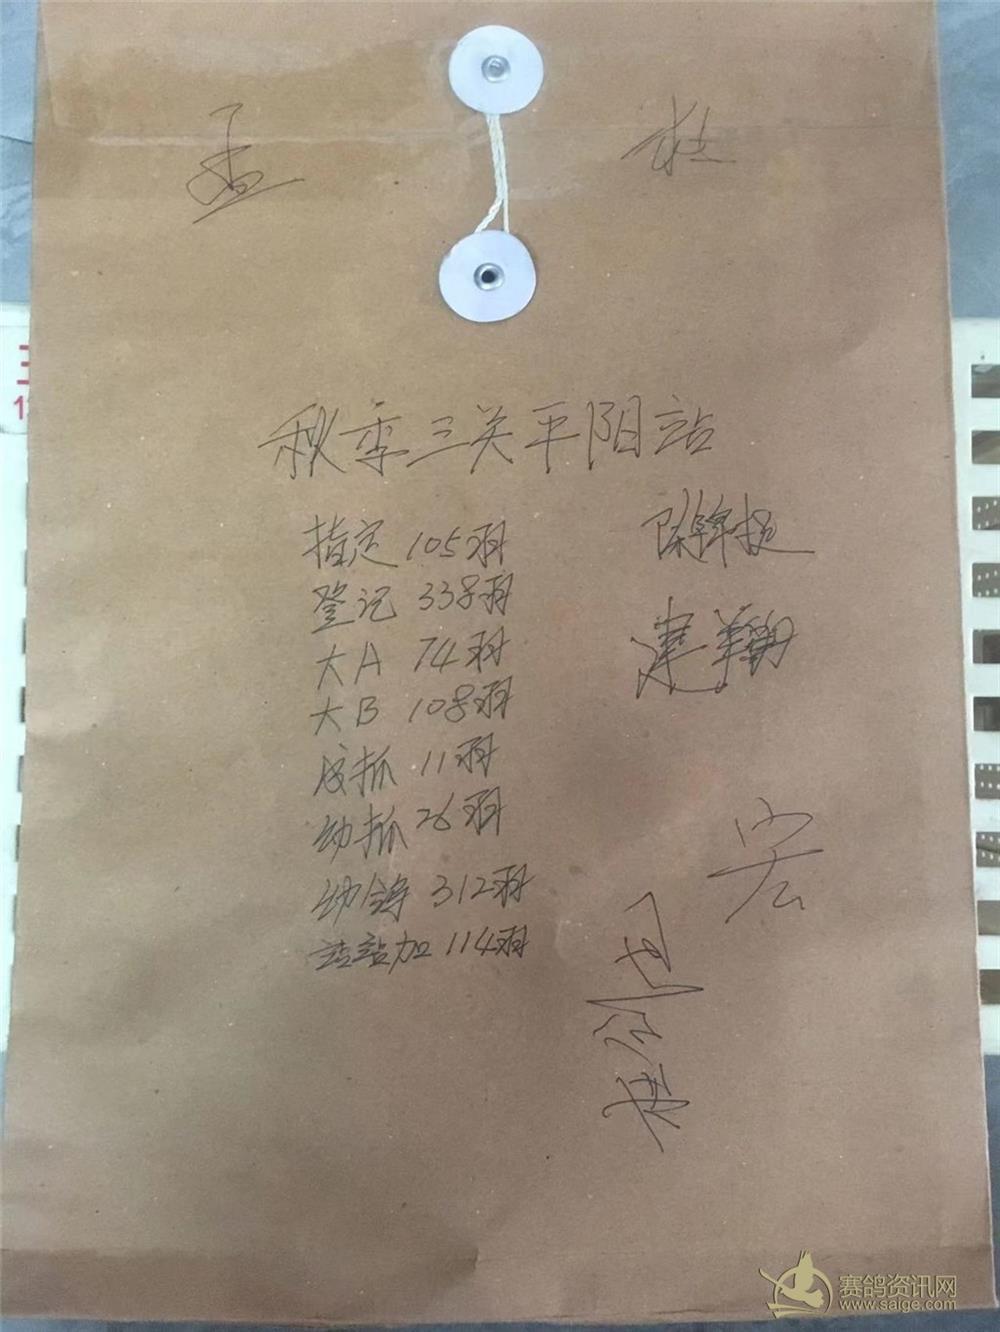 孟
秋季三关平阳站
指定 105羽
登记 338羽
大A 74羽
大B 108羽
成抓 11羽
幼抓 26羽
幼鸽 312羽
站站加 114羽
建翔
宏
赛鸽资讯网
www.saige.com